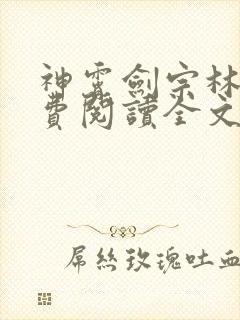 神霄劍宗林
費閱讀全文
屌絲玫瑰吐血